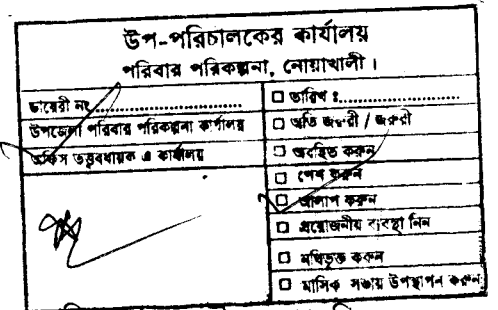 উপ-পরিচালকের কার্যালয়
পরিবার পরিকল্পনা, নোয়াখালী।
ডায়েরী নং..............................
উপজেলা পরিবার পরিকল্পনা কার্যালয়
অফিস তত্ত্বাবধায়ক এ কার্যালয়
☐ তারিখ ঃ........................
☐ অতি জরুরী / জরুরী
☐ অবহিত করুন
☐ পেশ করুন
☐ আলাপ করুন
☐ প্রয়োজনীয় ব্যবস্থা নিন
☐ নথিভুক্ত করুন
☐ মাসিক সভায় উপস্থাপন করুন